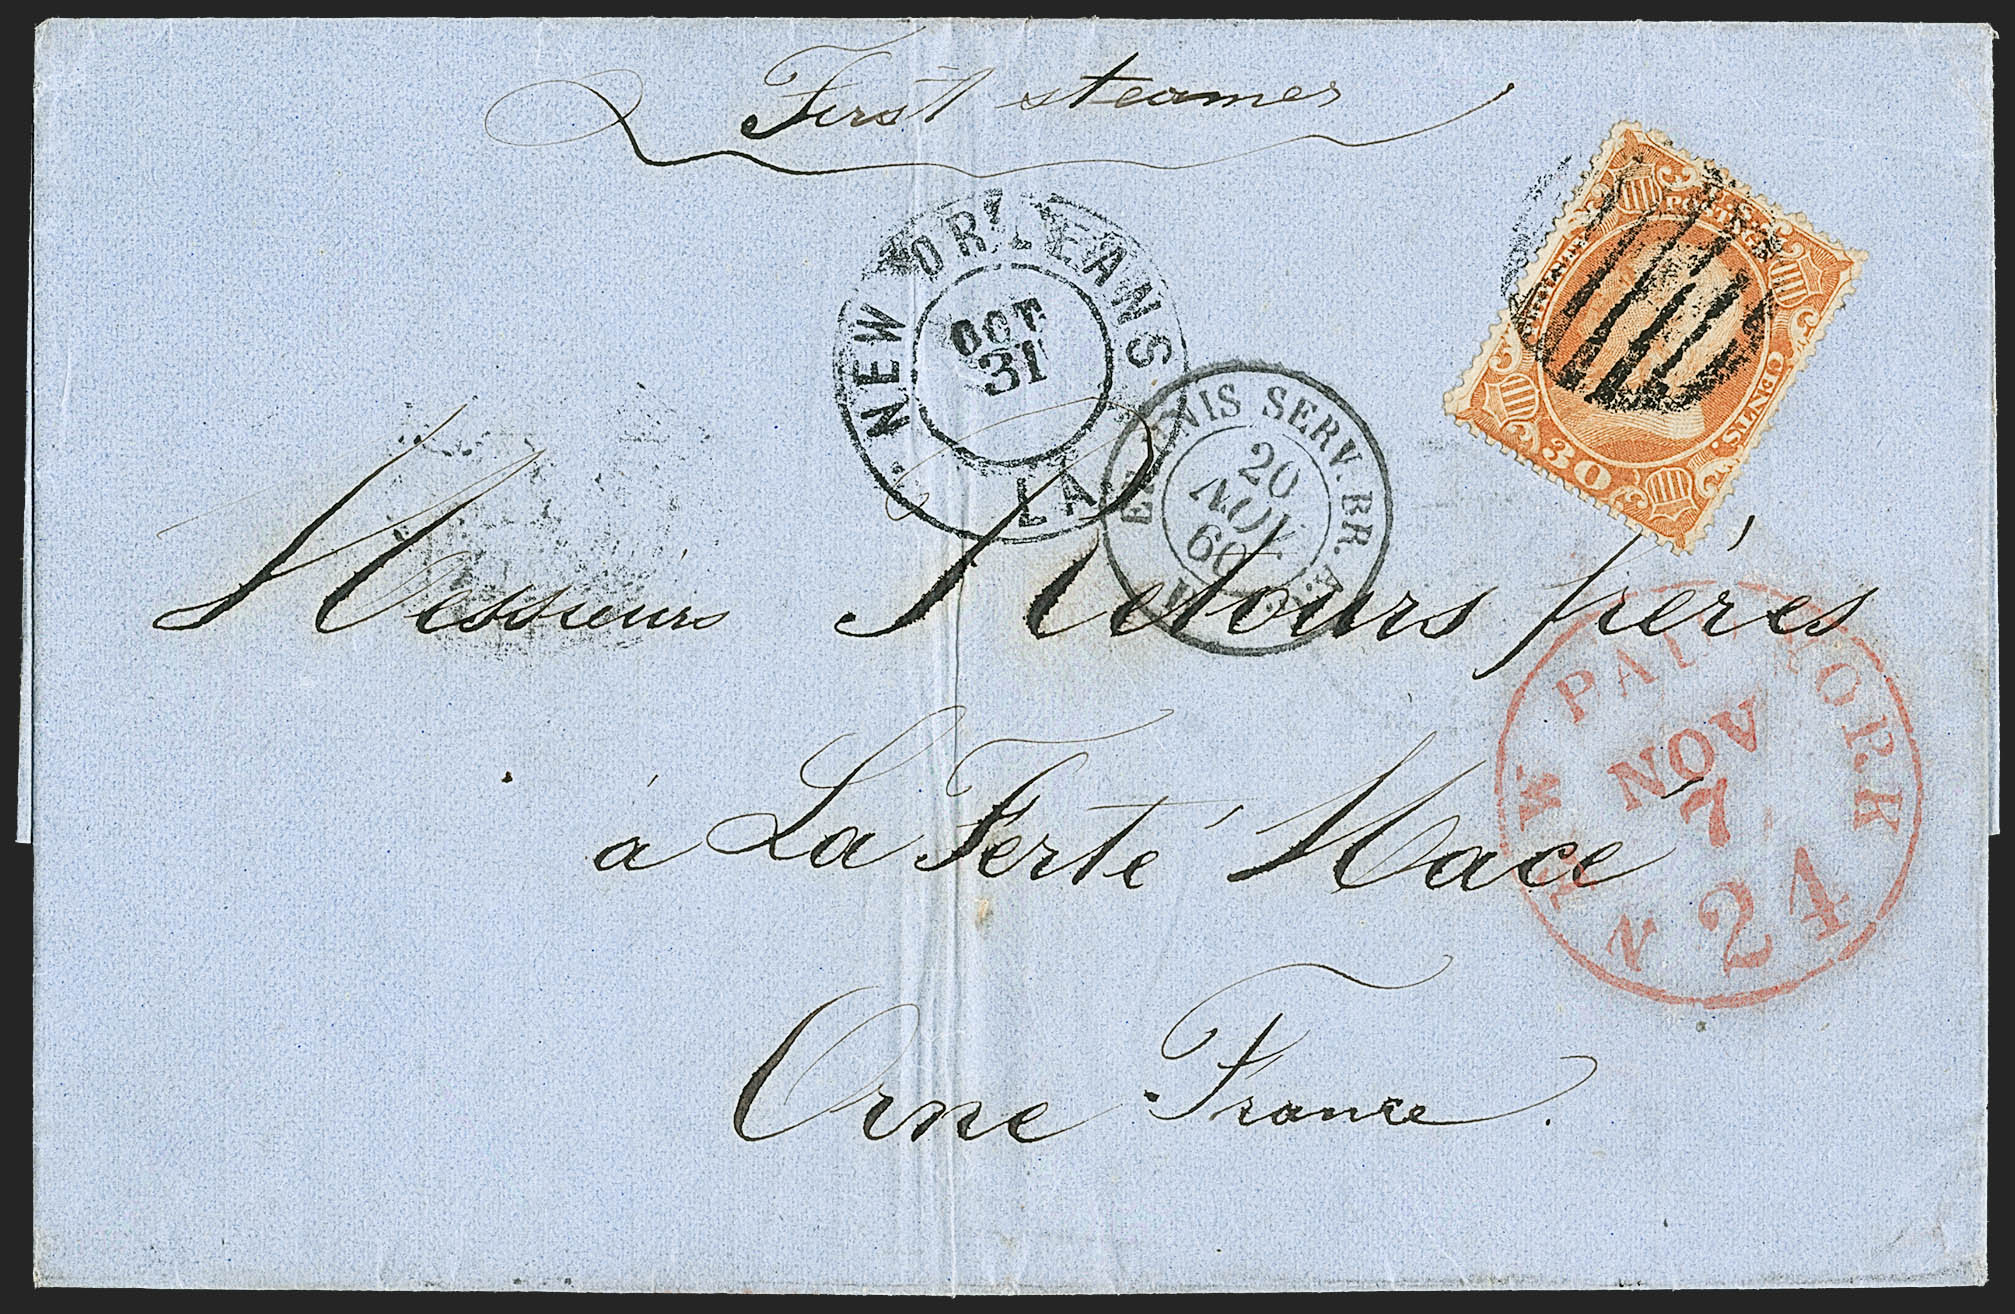 First steamer
NEW ORLEANS
OCT
31
LA
U.S.
POSTAGE
THIRTY CENTS
30
SERV. BR.
20
NOV.
60
NEW PAID YORK
NOV
7
24
Messieurs Retours frères
à La Ferté Macé
Orne France.